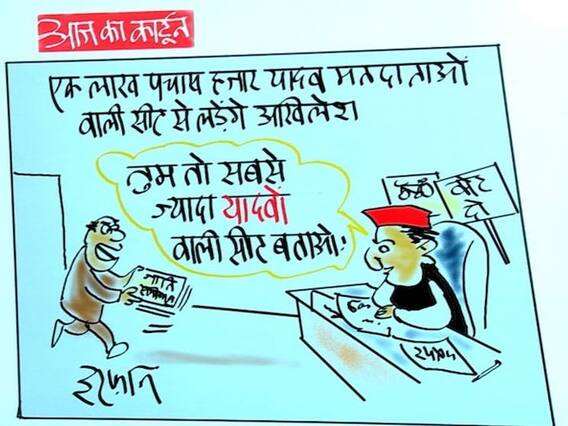 आज का कार्टून
एक लाख पचास हजार यादव मतदाताओं
वाली सीट से लड़ेंगे अखिलेश
तुम तो सबसे
ज्यादा यादवों
वाली सीट बताओ!
वोट
दो
जाति
इरफ़ान